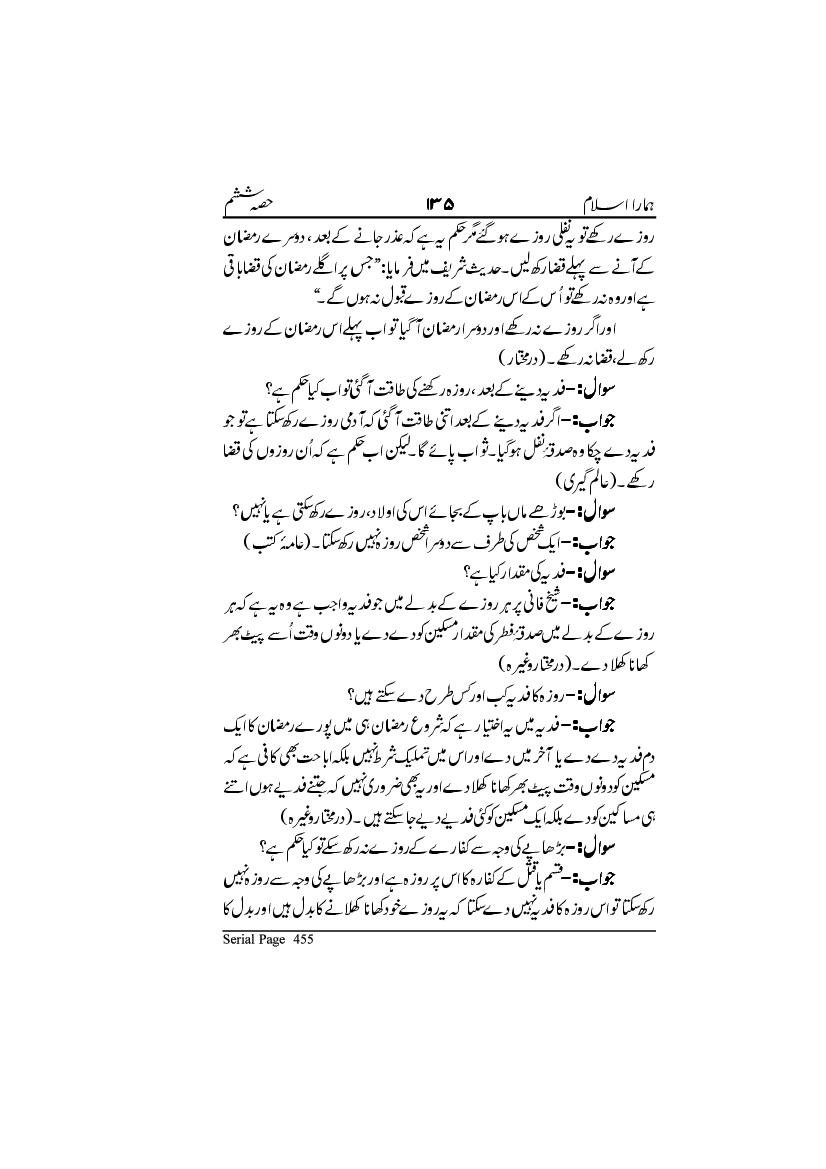 ہمارا اسلام ۱۳۵ حصہ ششم
روزے رکھے تو یہ نفلی روزے ہو گئے مگر حکم یہ ہے کہ عذر جانے کے بعد ، دوسرے رمضان
کے آنے سے پہلے قضا رکھ لیں۔ حدیث شریف میں فرمایا: ’’جس پر اگلے رمضان کی قضا باقی
ہے اور وہ نہ رکھے تو اُس کے اس رمضان کے روزے قبول نہ ہوں گے۔‘‘
اور اگر روزے نہ رکھے اور دوسرا رمضان آ گیا تو اب پہلے اس رمضان کے روزے
رکھ لے، قضا نہ رکھے۔ (درمختار)
سوال:– فدیہ دینے کے بعد ، روزہ رکھنے کی طاقت آ گئی تو اب کیا حکم ہے؟
جواب:– اگر فدیہ دینے کے بعد اتنی طاقت آ گئی کہ آدمی روزے رکھ سکتا ہے تو جو
فدیہ دے چکا وہ صدقۂ نفل ہو گیا۔ ثواب پائے گا۔ لیکن اب حکم ہے کہ اُن روزوں کی قضا
رکھے۔ (عالم گیری)
سوال:– بوڑھے ماں باپ کے بجائے اس کی اولاد، روزے رکھ سکتی ہے یا نہیں؟
جواب:– ایک شخص کی طرف سے دوسرا شخص روزہ نہیں رکھ سکتا۔ (عامۂ کتب)
سوال:– فدیہ کی مقدار کیا ہے؟
جواب:– شیخ فانی پر ہر روزے کے بدلے میں جو فدیہ واجب ہے وہ یہ ہے کہ ہر
روزے کے بدلے میں صدقۂ فطر کی مقدار مسکین کو دے دے یا دونوں وقت اُسے پیٹ بھر
کھانا کھلا دے۔ (درمختار وغیرہ)
سوال:– روزہ کا فدیہ کب اور کس طرح دے سکتے ہیں؟
جواب:– فدیہ میں یہ اختیار ہے کہ شروع رمضان ہی میں پورے رمضان کا ایک
دم فدیہ دے دے یا آخر میں دے اور اس میں تملیک شرط نہیں بلکہ اباحت بھی کافی ہے کہ
مسکین کو دونوں وقت پیٹ بھر کھانا کھلا دے اور یہ بھی ضروری نہیں کہ جتنے فدیے ہوں اتنے
ہی مساکین کو دے بلکہ ایک مسکین کو کئی فدیے دیے جا سکتے ہیں۔ (درمختار وغیرہ)
سوال:– بڑھاپے کی وجہ سے کفارے کے روزے نہ رکھ سکے تو کیا حکم ہے؟
جواب:– قسم یا قتل کے کفارہ کا اس پر روزہ ہے اور بڑھاپے کی وجہ سے روزہ نہیں
رکھ سکتا تو اس روزہ کا فدیہ نہیں دے سکتا کہ یہ روزے خود کھانا کھلانے کا بدل ہیں اور بدل کا
Serial Page 455